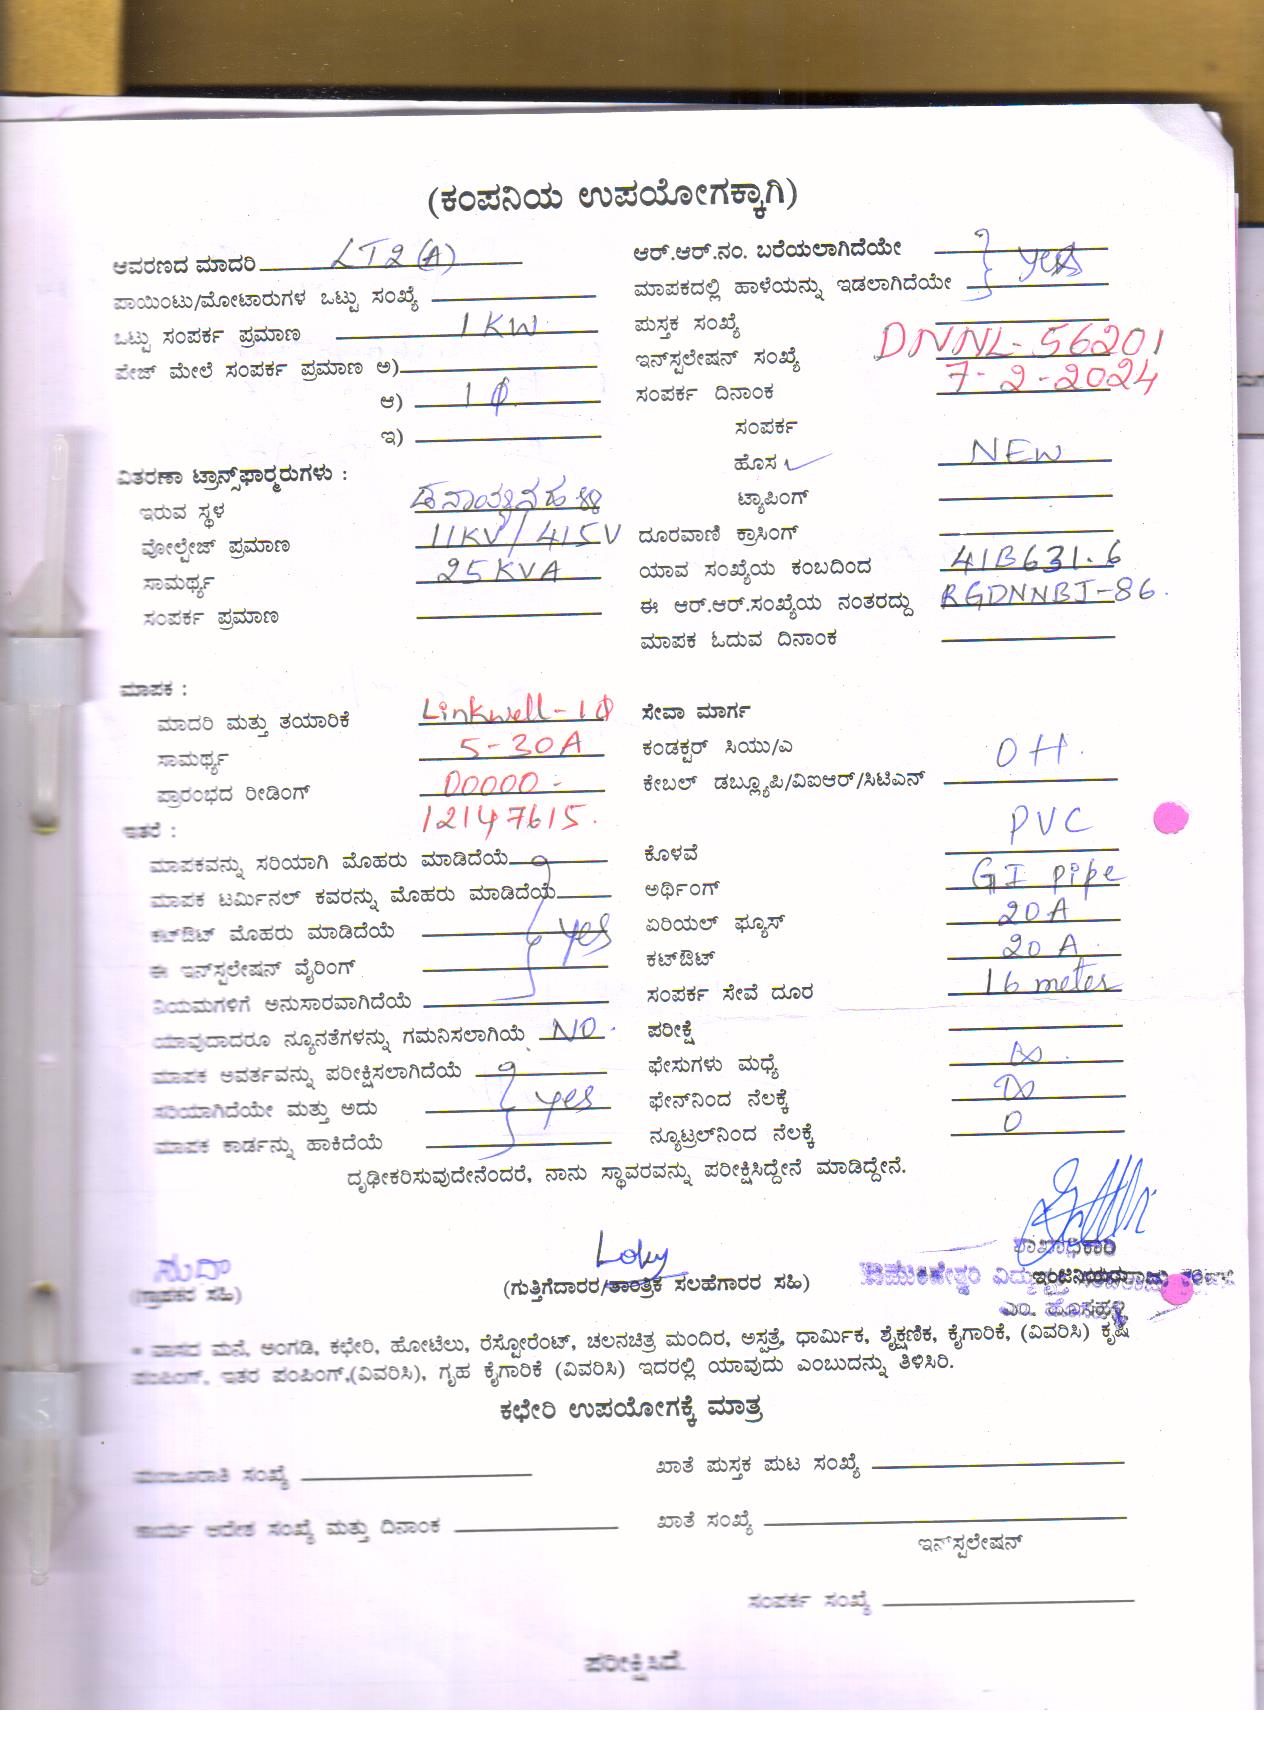 (ಕಂಪನಿಯ ಉಪಯೋಗಕ್ಕಾಗಿ)
ಆವರಣದ ಮಾದರಿ LT2(A)
ಪಾಯಿಂಟು/ಮೋಟಾರುಗಳ ಒಟ್ಟು ಸಂಖ್ಯೆ
ಒಟ್ಟು ಸಂಪರ್ಕ ಪ್ರಮಾಣ 1KW
ಪೇಜ್ ಮೇಲೆ ಸಂಪರ್ಕ ಪ್ರಮಾಣ ಅ)
ಆ) 1ϕ
ಇ)
ವಿತರಣಾ ಟ್ರಾನ್ಸ್‌ಫಾರ್ಮರುಗಳು :
ಇರುವ ಸ್ಥಳ
ವೋಲ್ಟೇಜ್ ಪ್ರಮಾಣ 11KV/415V
ಸಾಮರ್ಥ್ಯ 25KVA
ಸಂಪರ್ಕ ಪ್ರಮಾಣ
ಮಾಪಕ :
ಮಾದರಿ ಮತ್ತು ತಯಾರಿಕೆ Linkwell-1ϕ
ಸಾಮರ್ಥ್ಯ 5-30A
ಪ್ರಾರಂಭದ ರೀಡಿಂಗ್ 00000-
12147615.
ಇತರೆ :
ಮಾಪಕವನ್ನು ಸರಿಯಾಗಿ ಮೊಹರು ಮಾಡಿದೆಯೆ
ಮಾಪಕ ಟರ್ಮಿನಲ್ ಕವರನ್ನು ಮೊಹರು ಮಾಡಿದೆಯೆ
ಕಟ್‌ಔಟ್ ಮೊಹರು ಮಾಡಿದೆಯೆ yes
ಈ ಇನ್‌ಸ್ಟಲೇಷನ್ ವೈರಿಂಗ್
ನಿಯಮಗಳಿಗೆ ಅನುಸಾರವಾಗಿದೆಯೆ
ಯಾವುದಾದರೂ ನ್ಯೂನತೆಗಳನ್ನು ಗಮನಿಸಲಾಗಿಯೆ NO.
ಮಾಪಕ ಅವರ್ತವನ್ನು ಪರೀಕ್ಷಿಸಲಾಗಿದೆಯೆ
ಸರಿಯಾಗಿದೆಯೇ ಮತ್ತು ಅದು yes
ಮಾಪಕ ಕಾರ್ಡನ್ನು ಹಾಕಿದೆಯೆ
ಆರ್.ಆರ್.ನಂ. ಬರೆಯಲಾಗಿದೆಯೇ
ಮಾಪಕದಲ್ಲಿ ಹಾಳೆಯನ್ನು ಇಡಲಾಗಿದೆಯೇ yes
ಪುಸ್ತಕ ಸಂಖ್ಯೆ
ಇನ್‌ಸ್ಟಲೇಷನ್ ಸಂಖ್ಯೆ DNNL-56201
ಸಂಪರ್ಕ ದಿನಾಂಕ 7-2-2024
ಸಂಪರ್ಕ
ಹೊಸ NEW
ಟ್ಯಾಪಿಂಗ್
ದೂರವಾಣಿ ಕ್ರಾಸಿಂಗ್
ಯಾವ ಸಂಖ್ಯೆಯ ಕಂಬದಿಂದ 41B631.6
ಈ ಆರ್.ಆರ್.ಸಂಖ್ಯೆಯ ನಂತರದ್ದು RGDNNBJ-86.
ಮಾಪಕ ಓದುವ ದಿನಾಂಕ
ಸೇವಾ ಮಾರ್ಗ
ಕಂಡಕ್ಟರ್ ಸಿಯು/ಎ OH.
ಕೇಬಲ್ ಡಬ್ಲ್ಯೂಪಿ/ವಿಐಆರ್/ಸಿಟಿಎನ್
ಕೊಳವೆ PVC
ಅರ್ಥಿಂಗ್ GI pipe
ಏರಿಯಲ್ ಫ್ಯೂಸ್ 20A
ಕಟ್‌ಔಟ್ 20A
ಸಂಪರ್ಕ ಸೇವೆ ದೂರ 16 meter
ಪರೀಕ್ಷೆ
ಫೇಸುಗಳು ಮಧ್ಯೆ ∞.
ಫೇನ್‌ನಿಂದ ನೆಲಕ್ಕೆ ∞
ನ್ಯೂಟ್ರಲ್‌ನಿಂದ ನೆಲಕ್ಕೆ 0
ದೃಢೀಕರಿಸುವುದೇನೆಂದರೆ, ನಾನು ಸ್ಥಾವರವನ್ನು ಪರೀಕ್ಷಿಸಿದ್ದೇನೆ ಮಾಡಿದ್ದೇನೆ.
(ಗ್ರಾಹಕರ ಸಹಿ)
Loky
(ಗುತ್ತಿಗೆದಾರರ/ತಾಂತ್ರಿಕ ಸಲಹೆಗಾರರ ಸಹಿ)
ಶಾಖಾಧಿಕಾರಿ
* ವಾಸದ ಮನೆ, ಅಂಗಡಿ, ಕಛೇರಿ, ಹೋಟೆಲು, ರೆಸ್ಟೋರೆಂಟ್, ಚಲನಚಿತ್ರ ಮಂದಿರ, ಅಸ್ಪತ್ರೆ, ಧಾರ್ಮಿಕ, ಶೈಕ್ಷಣಿಕ, ಕೈಗಾರಿಕೆ, (ವಿವರಿಸಿ) ಕೃಷಿ
ಪಂಪಿಂಗ್, ಇತರ ಪಂಪಿಂಗ್,(ವಿವರಿಸಿ), ಗೃಹ ಕೈಗಾರಿಕೆ (ವಿವರಿಸಿ) ಇದರಲ್ಲಿ ಯಾವುದು ಎಂಬುದನ್ನು ತಿಳಿಸಿರಿ.
ಕಛೇರಿ ಉಪಯೋಗಕ್ಕೆ ಮಾತ್ರ
ಮಂಜೂರಾತಿ ಸಂಖ್ಯೆ
ಖಾತೆ ಪುಸ್ತಕ ಪುಟ ಸಂಖ್ಯೆ
ಕಾರ್ಯ ಆದೇಶ ಸಂಖ್ಯೆ ಮತ್ತು ದಿನಾಂಕ
ಖಾತೆ ಸಂಖ್ಯೆ
ಇನ್‌ಸ್ಟಲೇಷನ್
ಸಂಪರ್ಕ ಸಂಖ್ಯೆ
ಪರೀಕ್ಷಿಸಿದೆ.